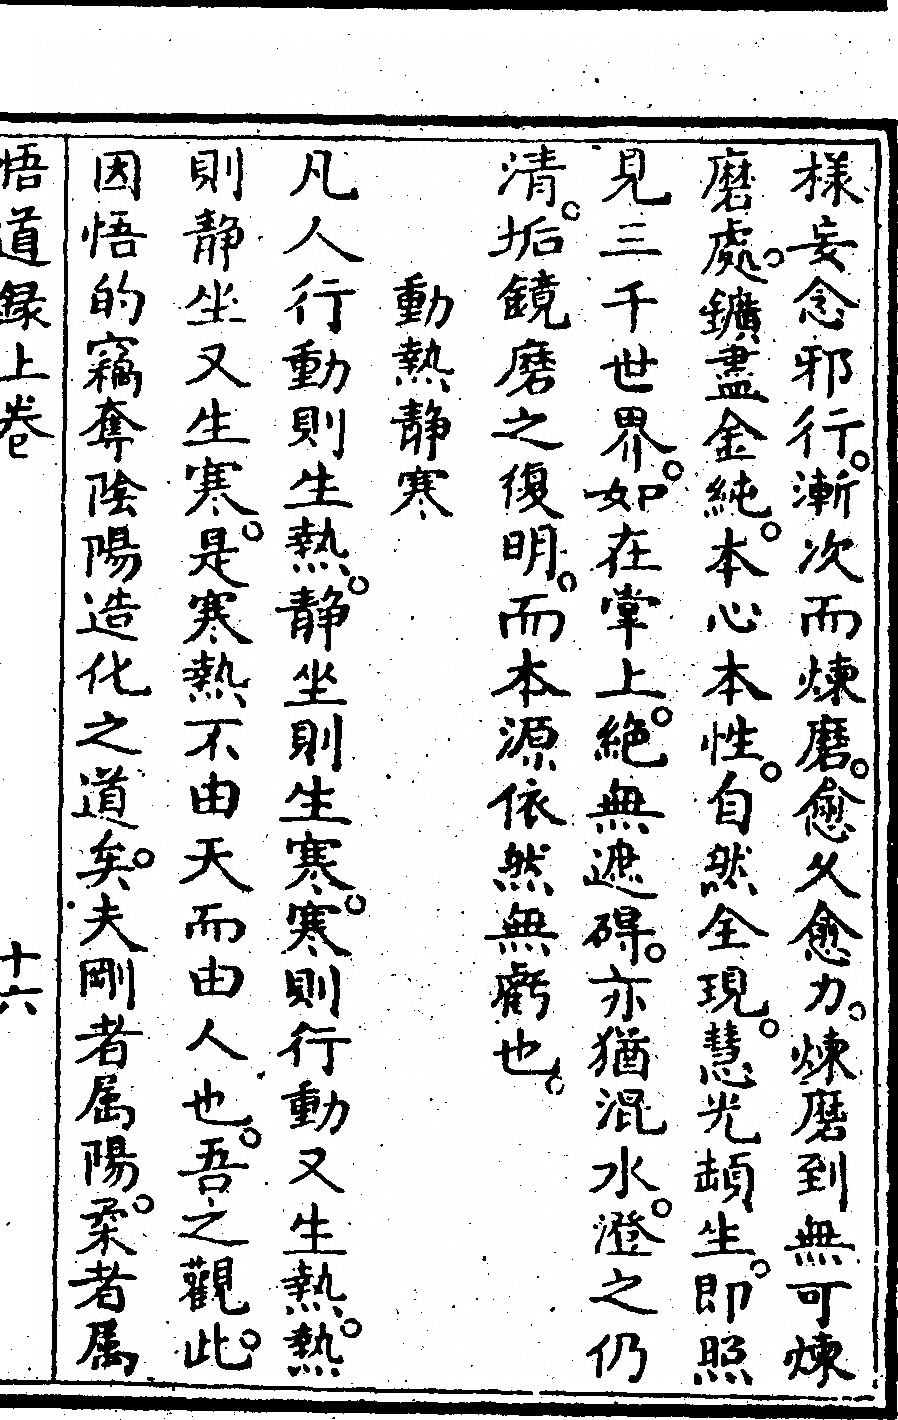 樣妄念邪行。漸次而煉磨。愈久愈力。煉磨到無可煉
磨處。鑛盡金純。本心本性。自然全現。慧光頓生。即照
見三千世界。如在掌上。絕無遮碍。亦猶混水。澄之仍
清。垢鏡磨之復明。而本源依然無虧也。
動熱靜寒
凡人行動則生熱。靜坐則生寒。寒則行動又生熱。熱
則靜坐又生寒。是寒熱不由天而由人也。吾之觀此。
因悟的竊奪陰陽造化之道矣。夫剛者属陽。柔者属
悟道録上卷 十六